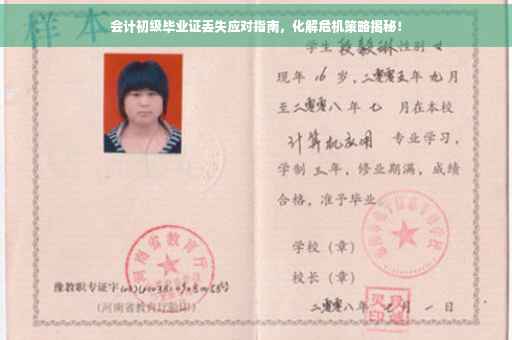 会计初级毕业证丢失应对指南，化解危机策略揭秘！
样本
学生段毅琳性别女
现年16岁，二零零五年九月
至二零零八年七月在本校
计算机应用 专业学习，
学制三年，修业期满，成绩
合格，准予毕业
学校（章）
校长（章）
二零零八年七月一日
河南省教育厅
豫教职专证字
(河南省教育厅验印)